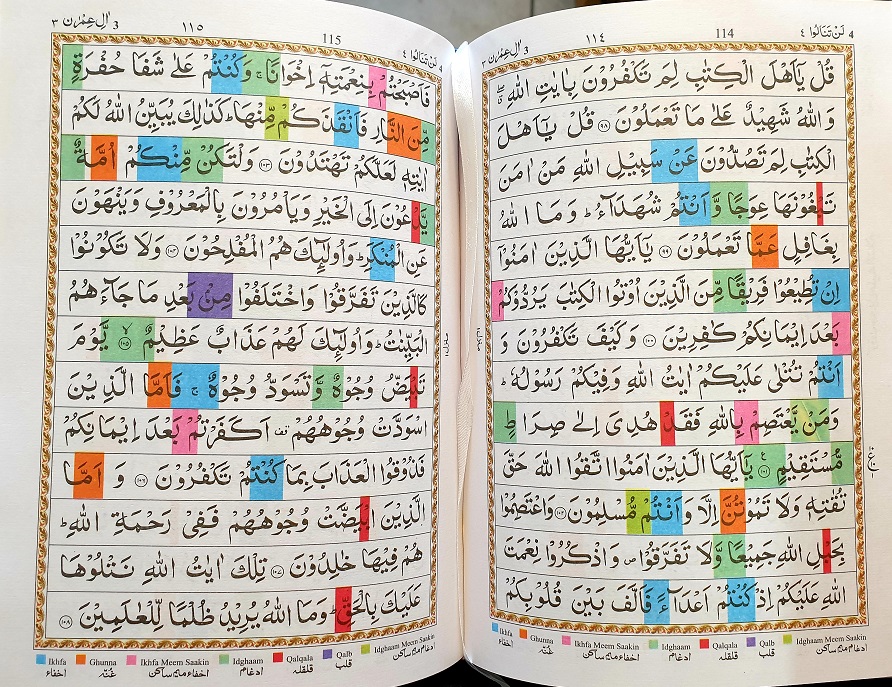 ٣ اٰلِ عِمْرٰن 3
١١٤
114
لَنْ تَنَالُوْا ٤ 4
قُلْ يٰٓاَهْلَ الْكِتٰبِ لِمَ تَكْفُرُوْنَ بِاٰيٰتِ اللّٰهِ ۖ
وَ اللّٰهُ شَهِيْدٌ عَلٰى مَا تَعْمَلُوْنَ ﴿٩٨﴾ قُلْ يٰٓاَهْلَ
الْكِتٰبِ لِمَ تَصُدُّوْنَ عَنْ سَبِيْلِ اللّٰهِ مَنْ اٰمَنَ
تَبْغُوْنَهَا عِوَجًا وَّ اَنْتُمْ شُهَدَآءُ ؕ وَ مَا اللّٰهُ
بِغَافِلٍ عَمَّا تَعْمَلُوْنَ ﴿٩٩﴾ يٰٓاَيُّهَا الَّذِيْنَ اٰمَنُوْٓا
اِنْ تُطِيْعُوْا فَرِيْقًا مِّنَ الَّذِيْنَ اُوْتُوا الْكِتٰبَ يَرُدُّوْكُمْ
بَعْدَ اِيْمَانِكُمْ كٰفِرِيْنَ ﴿١٠٠﴾ وَ كَيْفَ تَكْفُرُوْنَ وَ
اَنْتُمْ تُتْلٰى عَلَيْكُمْ اٰيٰتُ اللّٰهِ وَفِيْكُمْ رَسُوْلُهٗ ؕ
وَمَنْ يَّعْتَصِمْ بِاللّٰهِ فَقَدْ هُدِىَ اِلٰى صِرَاطٍ
مُّسْتَقِيْمٍ ﴿١٠١﴾ يٰٓاَيُّهَا الَّذِيْنَ اٰمَنُوا اتَّقُوا اللّٰهَ حَقَّ
تُقٰتِهٖ وَلَا تَمُوْتُنَّ اِلَّا وَاَنْتُمْ مُّسْلِمُوْنَ ﴿١٠٢﴾ وَاعْتَصِمُوْا
بِحَبْلِ اللّٰهِ جَمِيْعًا وَّلَا تَفَرَّقُوْا ۪ وَ اذْكُرُوْا نِعْمَتَ
اللّٰهِ عَلَيْكُمْ اِذْ كُنْتُمْ اَعْدَآءً فَاَلَّفَ بَيْنَ قُلُوْبِكُمْ
Ikhfa Ghunna Ikhfa Meem Saakin Idghaam Qalqala Qalb Idghaam Meem Saakin
اخفاء غُنّه اخفاء میم ساکن ادغام قلقله قلب ادغام میم ساکن
٣ اٰلِ عِمْرٰن 3
١١٥
115
لَنْ تَنَالُوْا ٤ 4
فَاَصْبَحْتُمْ بِنِعْمَتِهٖٓ اِخْوَانًا ۚ وَكُنْتُمْ عَلٰى شَفَا حُفْرَةٍ
مِّنَ النَّارِ فَاَنْقَذَكُمْ مِّنْهَا ؕ كَذٰلِكَ يُبَيِّنُ اللّٰهُ لَكُمْ
اٰيٰتِهٖ لَعَلَّكُمْ تَهْتَدُوْنَ ﴿١٠٣﴾ وَلْتَكُنْ مِّنْكُمْ اُمَّةٌ
يَّدْعُوْنَ اِلَى الْخَيْرِ وَيَاْمُرُوْنَ بِالْمَعْرُوْفِ وَيَنْهَوْنَ
عَنِ الْمُنْكَرِ ؕ وَاُولٰٓئِكَ هُمُ الْمُفْلِحُوْنَ ﴿١٠٤﴾ وَلَا تَكُوْنُوْا
كَالَّذِيْنَ تَفَرَّقُوْا وَاخْتَلَفُوْا مِنْۢ بَعْدِ مَا جَآءَهُمُ
الْبَيِّنٰتُ ؕ وَاُولٰٓئِكَ لَهُمْ عَذَابٌ عَظِيْمٌ ﴿١٠٥﴾ يَّوْمَ
تَبْيَضُّ وُجُوْهٌ وَّتَسْوَدُّ وُجُوْهٌ ۚ فَاَمَّا الَّذِيْنَ
اسْوَدَّتْ وُجُوْهُهُمْ ۟ اَكَفَرْتُمْ بَعْدَ اِيْمَانِكُمْ
فَذُوْقُوا الْعَذَابَ بِمَا كُنْتُمْ تَكْفُرُوْنَ ﴿١٠٦﴾ وَ اَمَّا
الَّذِيْنَ ابْيَضَّتْ وُجُوْهُهُمْ فَفِيْ رَحْمَةِ اللّٰهِ ؕ
هُمْ فِيْهَا خٰلِدُوْنَ ﴿١٠٧﴾ تِلْكَ اٰيٰتُ اللّٰهِ نَتْلُوْهَا
عَلَيْكَ بِالْحَقِّ ؕ وَمَا اللّٰهُ يُرِيْدُ ظُلْمًا لِّلْعٰلَمِيْنَ ﴿١٠٨﴾
Ikhfa Ghunna Ikhfa Meem Saakin Idghaam Qalqala Qalb Idghaam Meem Saakin
اخفاء غُنّه اخفاء میم ساکن ادغام قلقله قلب ادغام میم ساکن